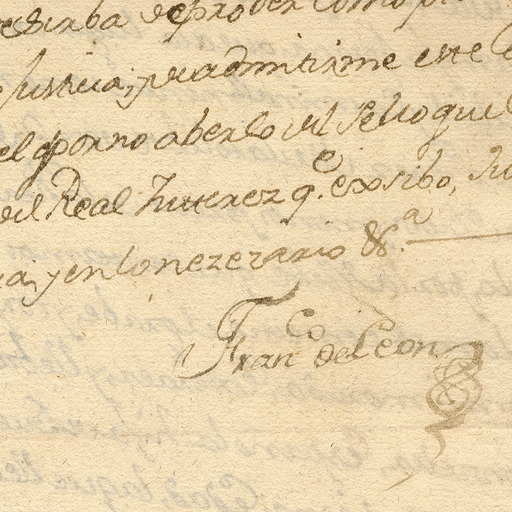 sirba de prober como p
Justicia; y admitirme este
el q por no aberlo del sello que
del Real Ynteres q.e exsibo, Ju
a, y en lo nezezario &.a
Fran.co de Leon